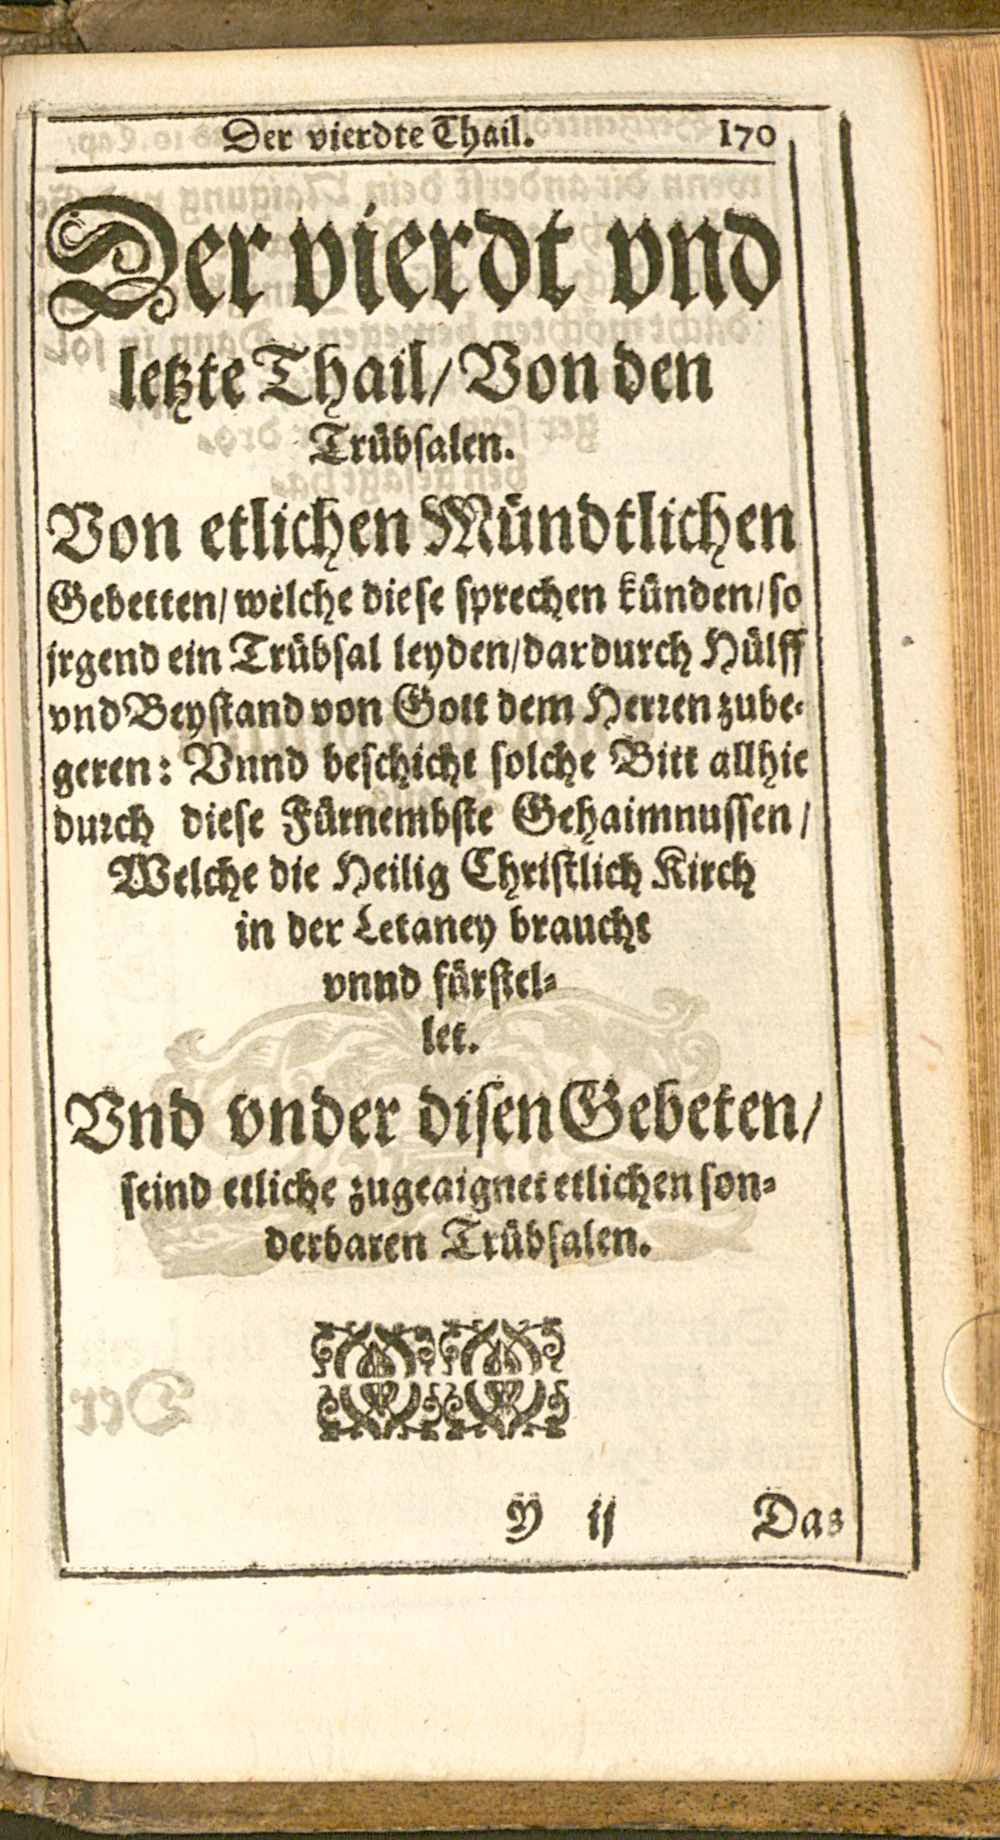 Der vierdte Thail. 170
Der vierdt vnd
letzte Thail/ Von den
Trübsalen.
Von etlichen Mündtlichen
Gebetten/ welche diese sprechen künden/ so
jrgend ein Trübsal leyden/ dardurch Hülff
vnd Beystand von Gott dem Herren zube-
geren: Vnnd beschicht solche Bitt allhie
durch diese Fürnembste Gehaimnussen/
Welche die Heilig Christlich Kirch
in der Letaney braucht
vnnd fürstel-
let.
Vnd vnder disen Gebeten/
seind etliche zugeaignet etlichen son-
derbaren Trübsalen.
Y ij Das